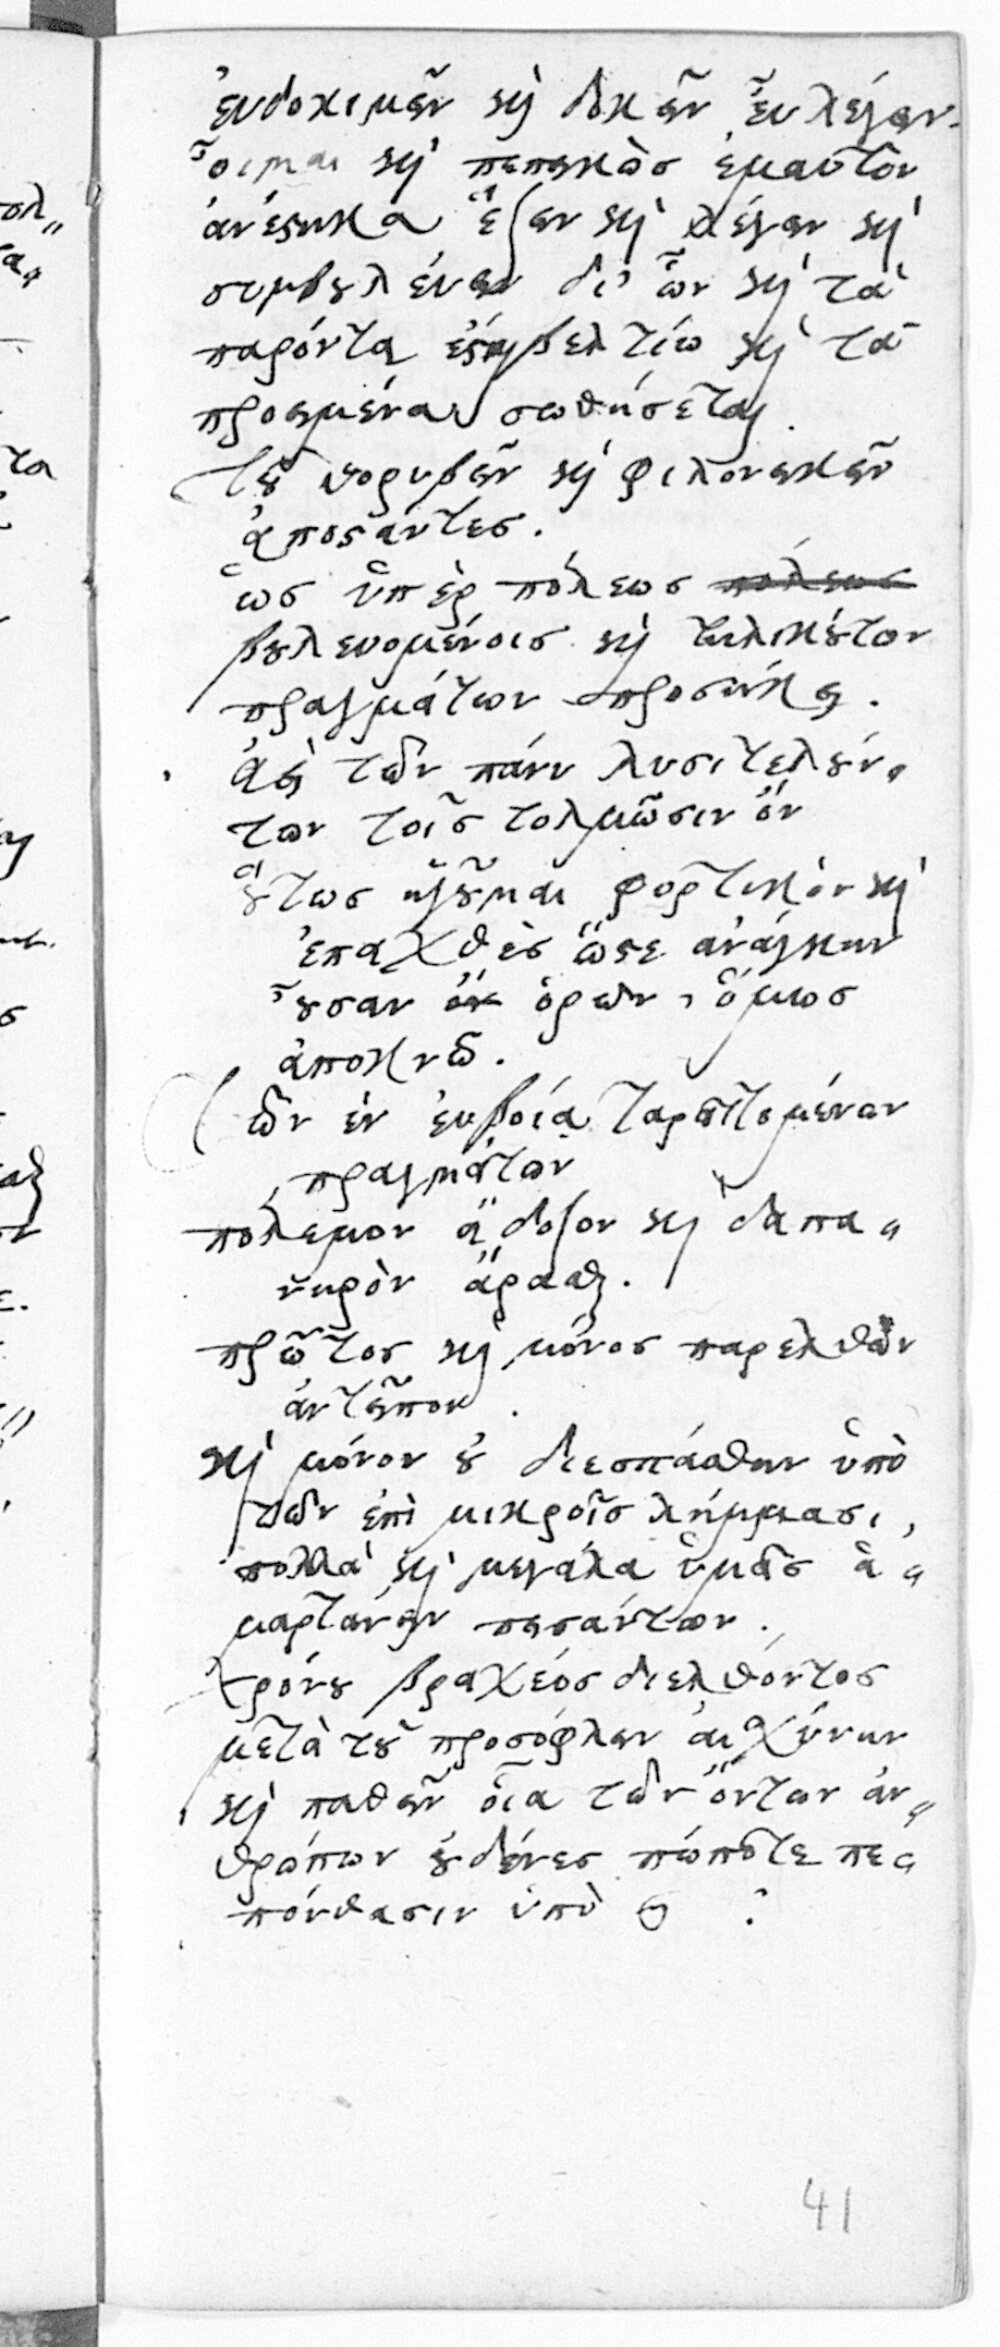 εὐδοκιμεῖν καὶ δοκεῖν εὖ λέγειν.
οἶμαι καὶ πεπεικὼς ἐμαυτὸν
ἀνέστηκα ἕξειν καὶ λέγειν καὶ
συμβουλεύειν δι' ὧν καὶ τὰ
παρόντα ἔσται βελτίω καὶ τὰ
προειμένα σωθήσεται.
τοῦ θορυβεῖν καὶ φιλονεικεῖν
ἀποστάντες.
ὡς ὑπὲρ πόλεως πόλεως
βουλευομένοις καὶ τηλικούτων
πραγμάτων προσήκει.
ἀεὶ τῶν πάνυ λυσιτελούν„
των τοῖς τολμῶσιν ὂν
οὕτως ἡγοῦμαι φορτικὸν καὶ
ἐπαχθὲς ὥστε ἀνάγκην
οὖσαν ὁρῶν, ὅμως
ἀποκνῶ.
τῶν ἐν εὐβοία ταραττομένων
πραγμάτων
πόλεμον ἄδοξον καὶ δαπα„
νηρὸν ἄρασθαι.
πρῶτος καὶ μόνος παρελθὼν
ἀντεῖπον.
καὶ μόνον οὐ διεσπάσθην ὑπὸ
τῶν ἐπὶ μικροῖς λήμμασι,
πολλὰ καὶ μεγάλα ὑμᾶς ἁ„
μαρτάνειν πεισάντων.
χρόνου βραχέος διελθόντος
μετὰ τοῦ προσόφλειν αἰσχύνην
καὶ παθεῖν οἷα τῶν ὄντων ἀν„
θρώπων οὐδένες πώποτε πε„
πόνθασιν ὑπὸ
41